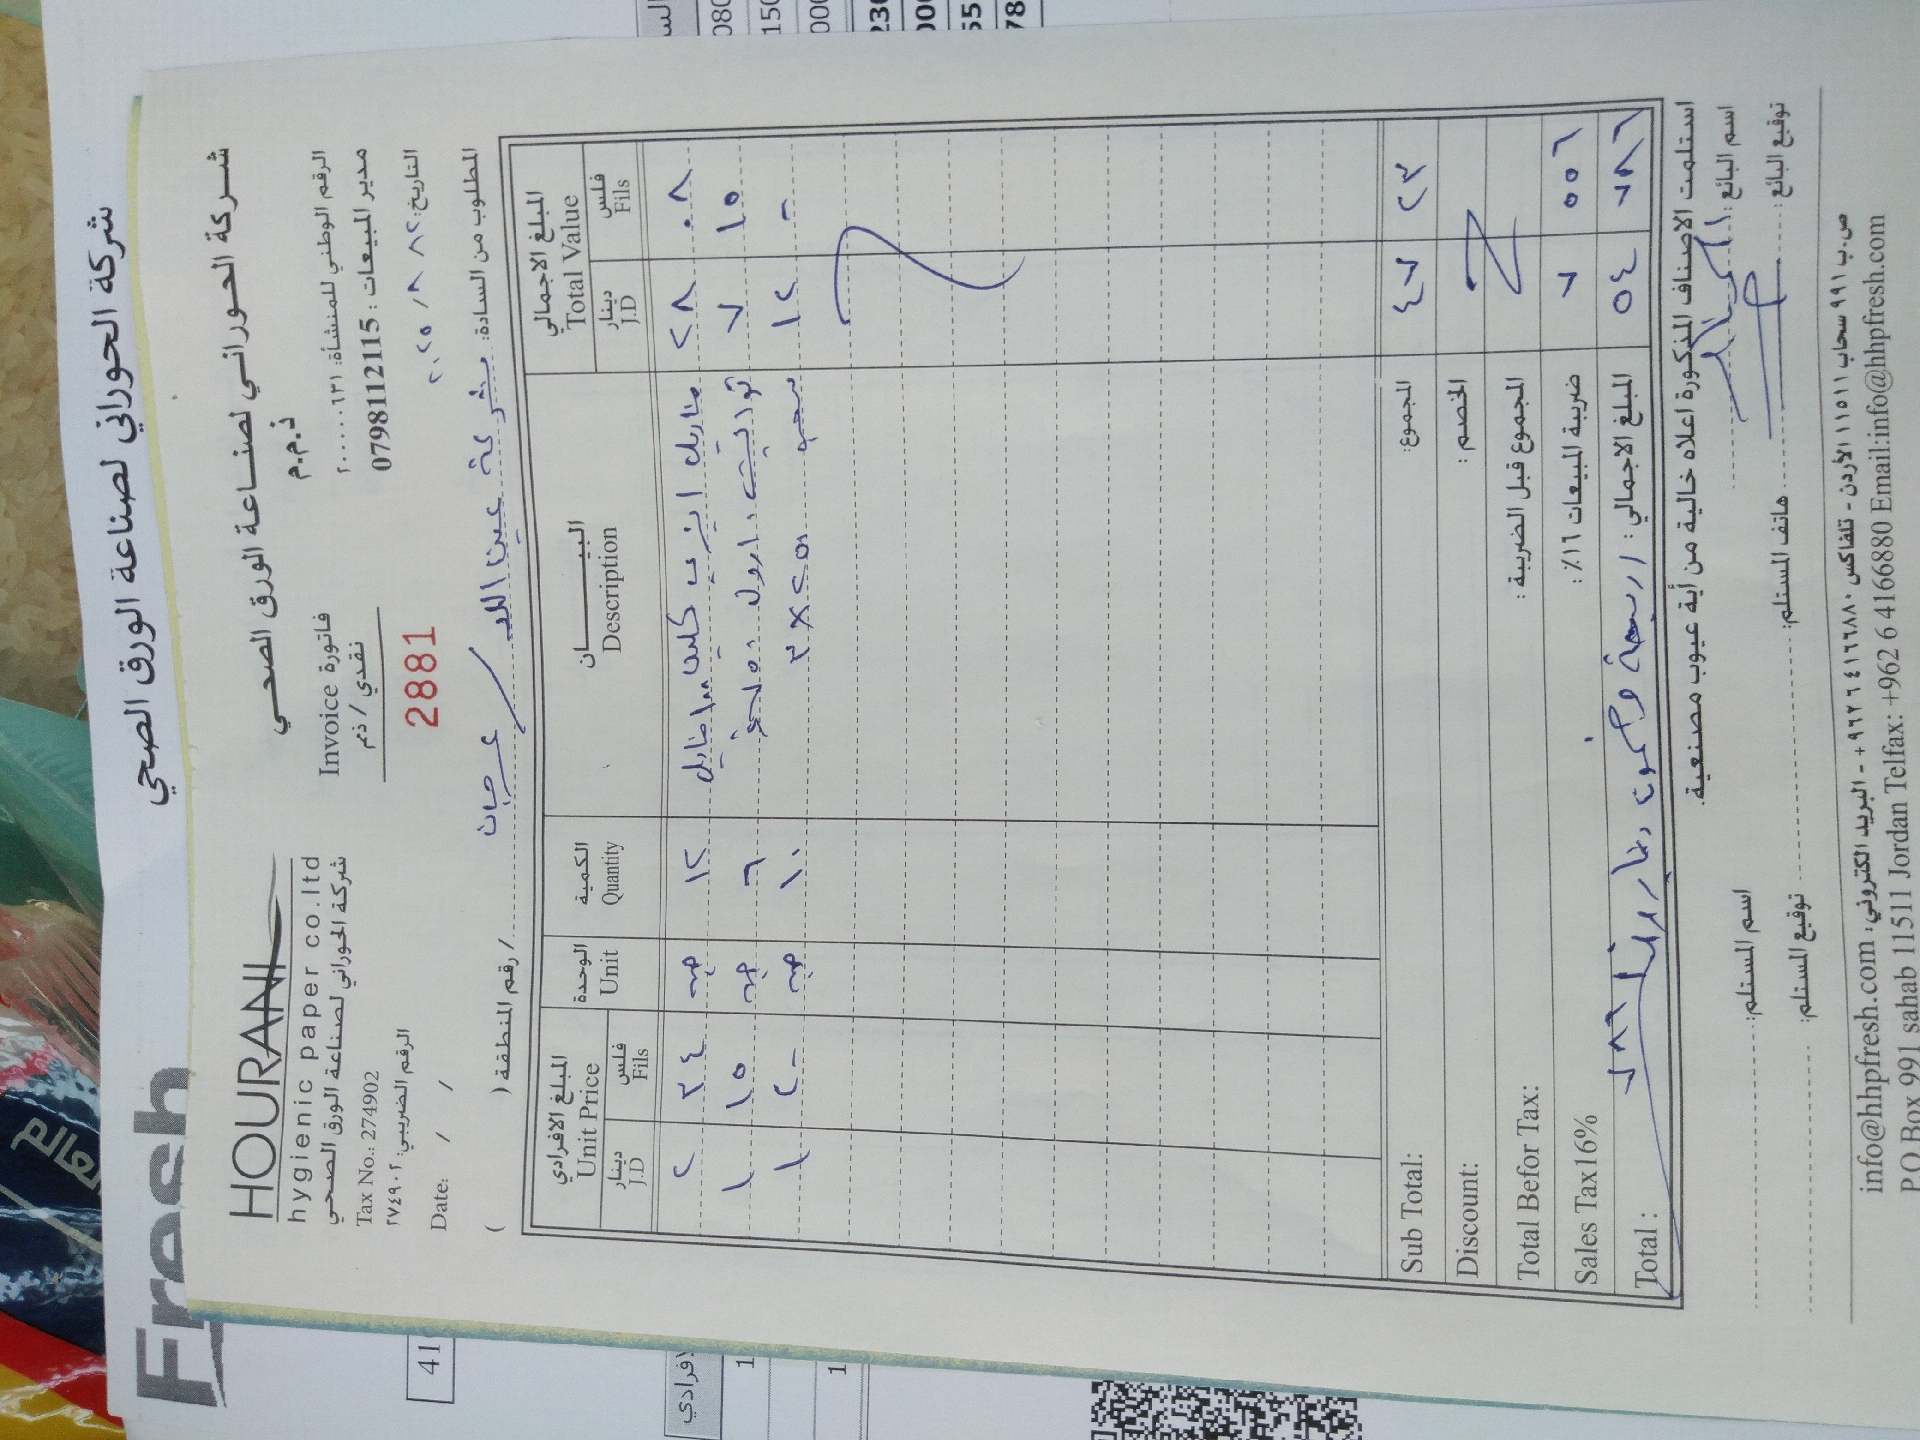 شركة الحوراني لصناعة الورق الصحي
Fresh
شركة الحوراني لصناعة الورق الصحي
ذ.م.م
HOURANI
hygienic paper co.ltd
شركة الحوراني لصناعة الورق الصحي
Tax No.: 274902
الرقم الضريبي: ٢٧٤٩٠٢
Date: / /
فاتورة Invoice
نقدي / ذمم
2881
الرقم الوطني للمنشأة: ٢٠٠٠٠٠٦٣١
مدير المبيعات : 0798112115
التاريخ: ٨٢ / ٨ / ٢٠٢٥
المطلوب من السادة: شركة عين اللد / عرجان / رقم المنطقة ( )
المبلغ الافرادي Unit Price الوحدة Unit الكمية Quantity البيــــــان Description المبلغ الاجمالي Total Value
دينار J.D فلس Fils دينار J.D فلس Fils
٢ ٣٤ ١٢ ٢٨ ٠٨
١ ١٥ ٦ تواليت ٧ ١٥
١ ٢- ١٠ سحب ٢٥٠×٣ ١٢ -
Sub Total: المجموع: ٤٧ ٢٣
Discount: الخصم:
Total Befor Tax: المجموع قبل الضريبة:
Sales Tax16% ضريبة المبيعات ١٦٪: ٧ ٥٥٦
Total: المبلغ الاجمالي: اربعة وخمسون دينار و ٧٨٦ ٥٤ ٧٨٦
استلمت الاصناف المذكورة اعلاه خالية من أية عيوب مصنعية.
اسم المستلم: اسم البائع:
توقيع المستلم: هاتف المستلم: توقيع البائع:
ص.ب ٩٩١ سحاب ١١٥١١ الأردن - تلفاكس ٤١٦٦٨٨٠ ٦ ٩٦٢+ - البريد الكتروني: info@hhpfresh.com
P.O.Box 991 sahab 11511 Jordan Telfax: +962 6 4166880 Email:info@hhpfresh.com
العالم
41
لافرادي
1
1